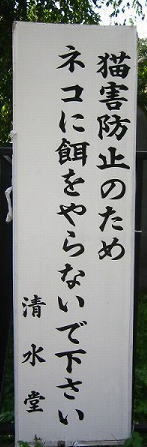 猫害防止のため
ネコに餌をやらないで下さい
清水堂